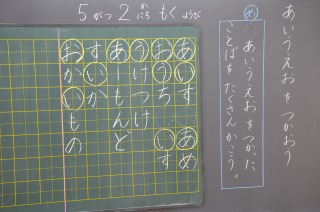 5がつ2かにちもくようび
あいうえおをつかおう
め あいうえおをつかった
ことばをたくさんかこう。
あめ
いす
おうち
あうーけつけ
あーもんど
すいか
おかいもの